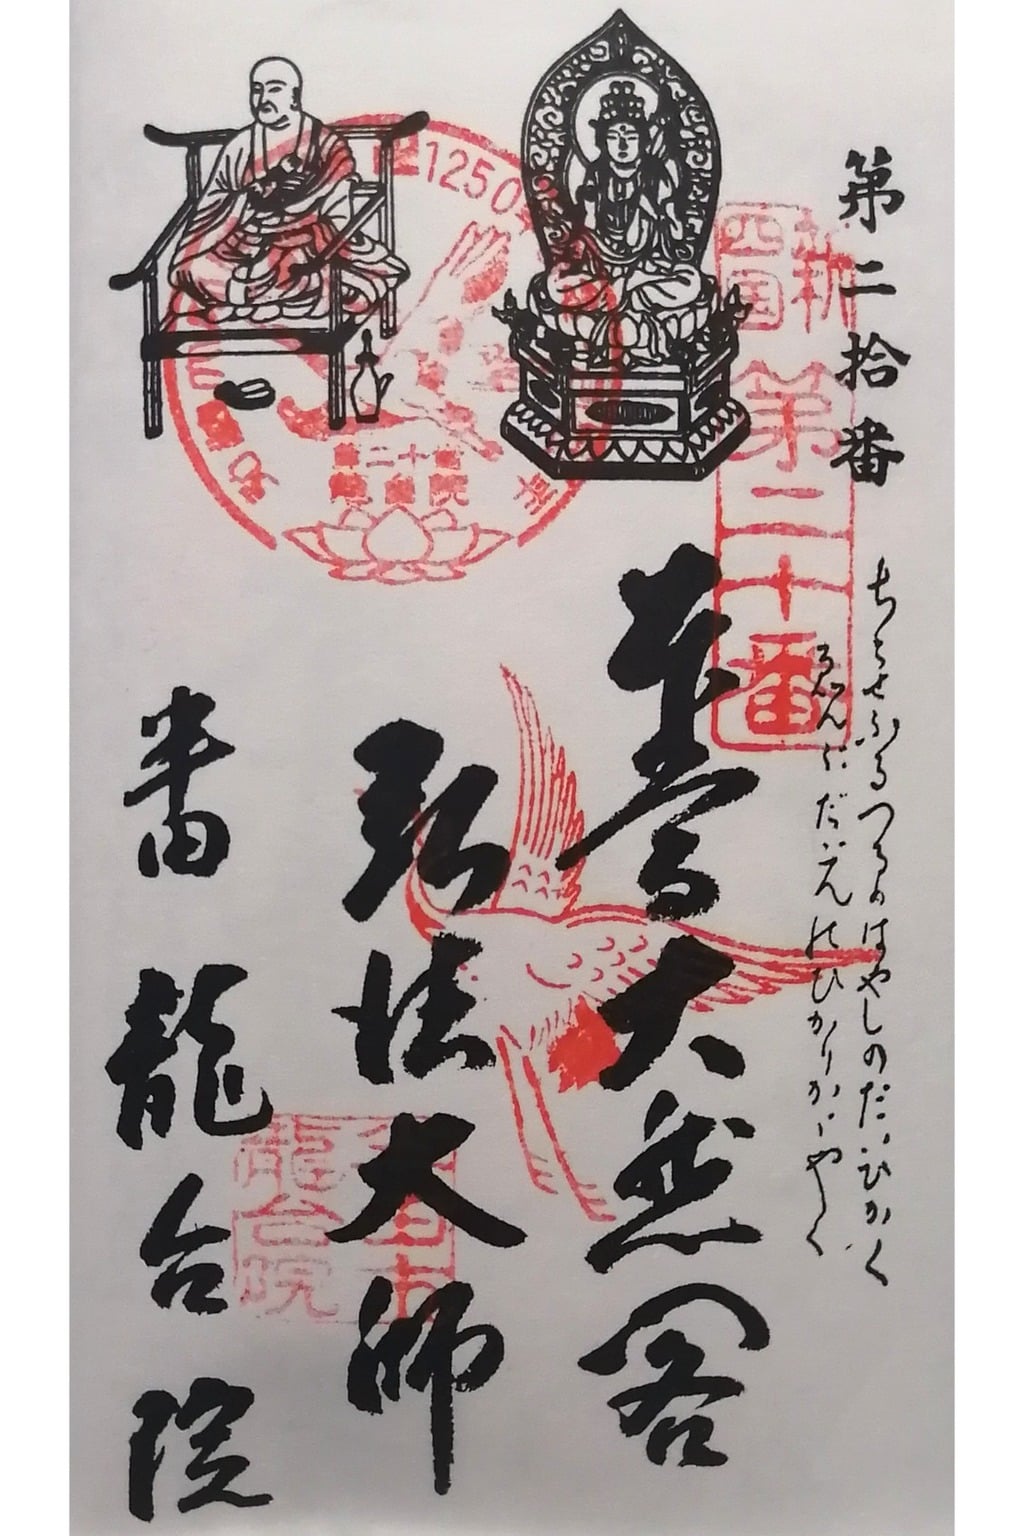 第二拾番
ちとせふるつるのはやしのだいひかく
のひかりかゞやく
新四国
第二十番
本尊大悲閣
弘法大師
半田 龍台院
1250
第二十番
龍台院
半田市
龍台院